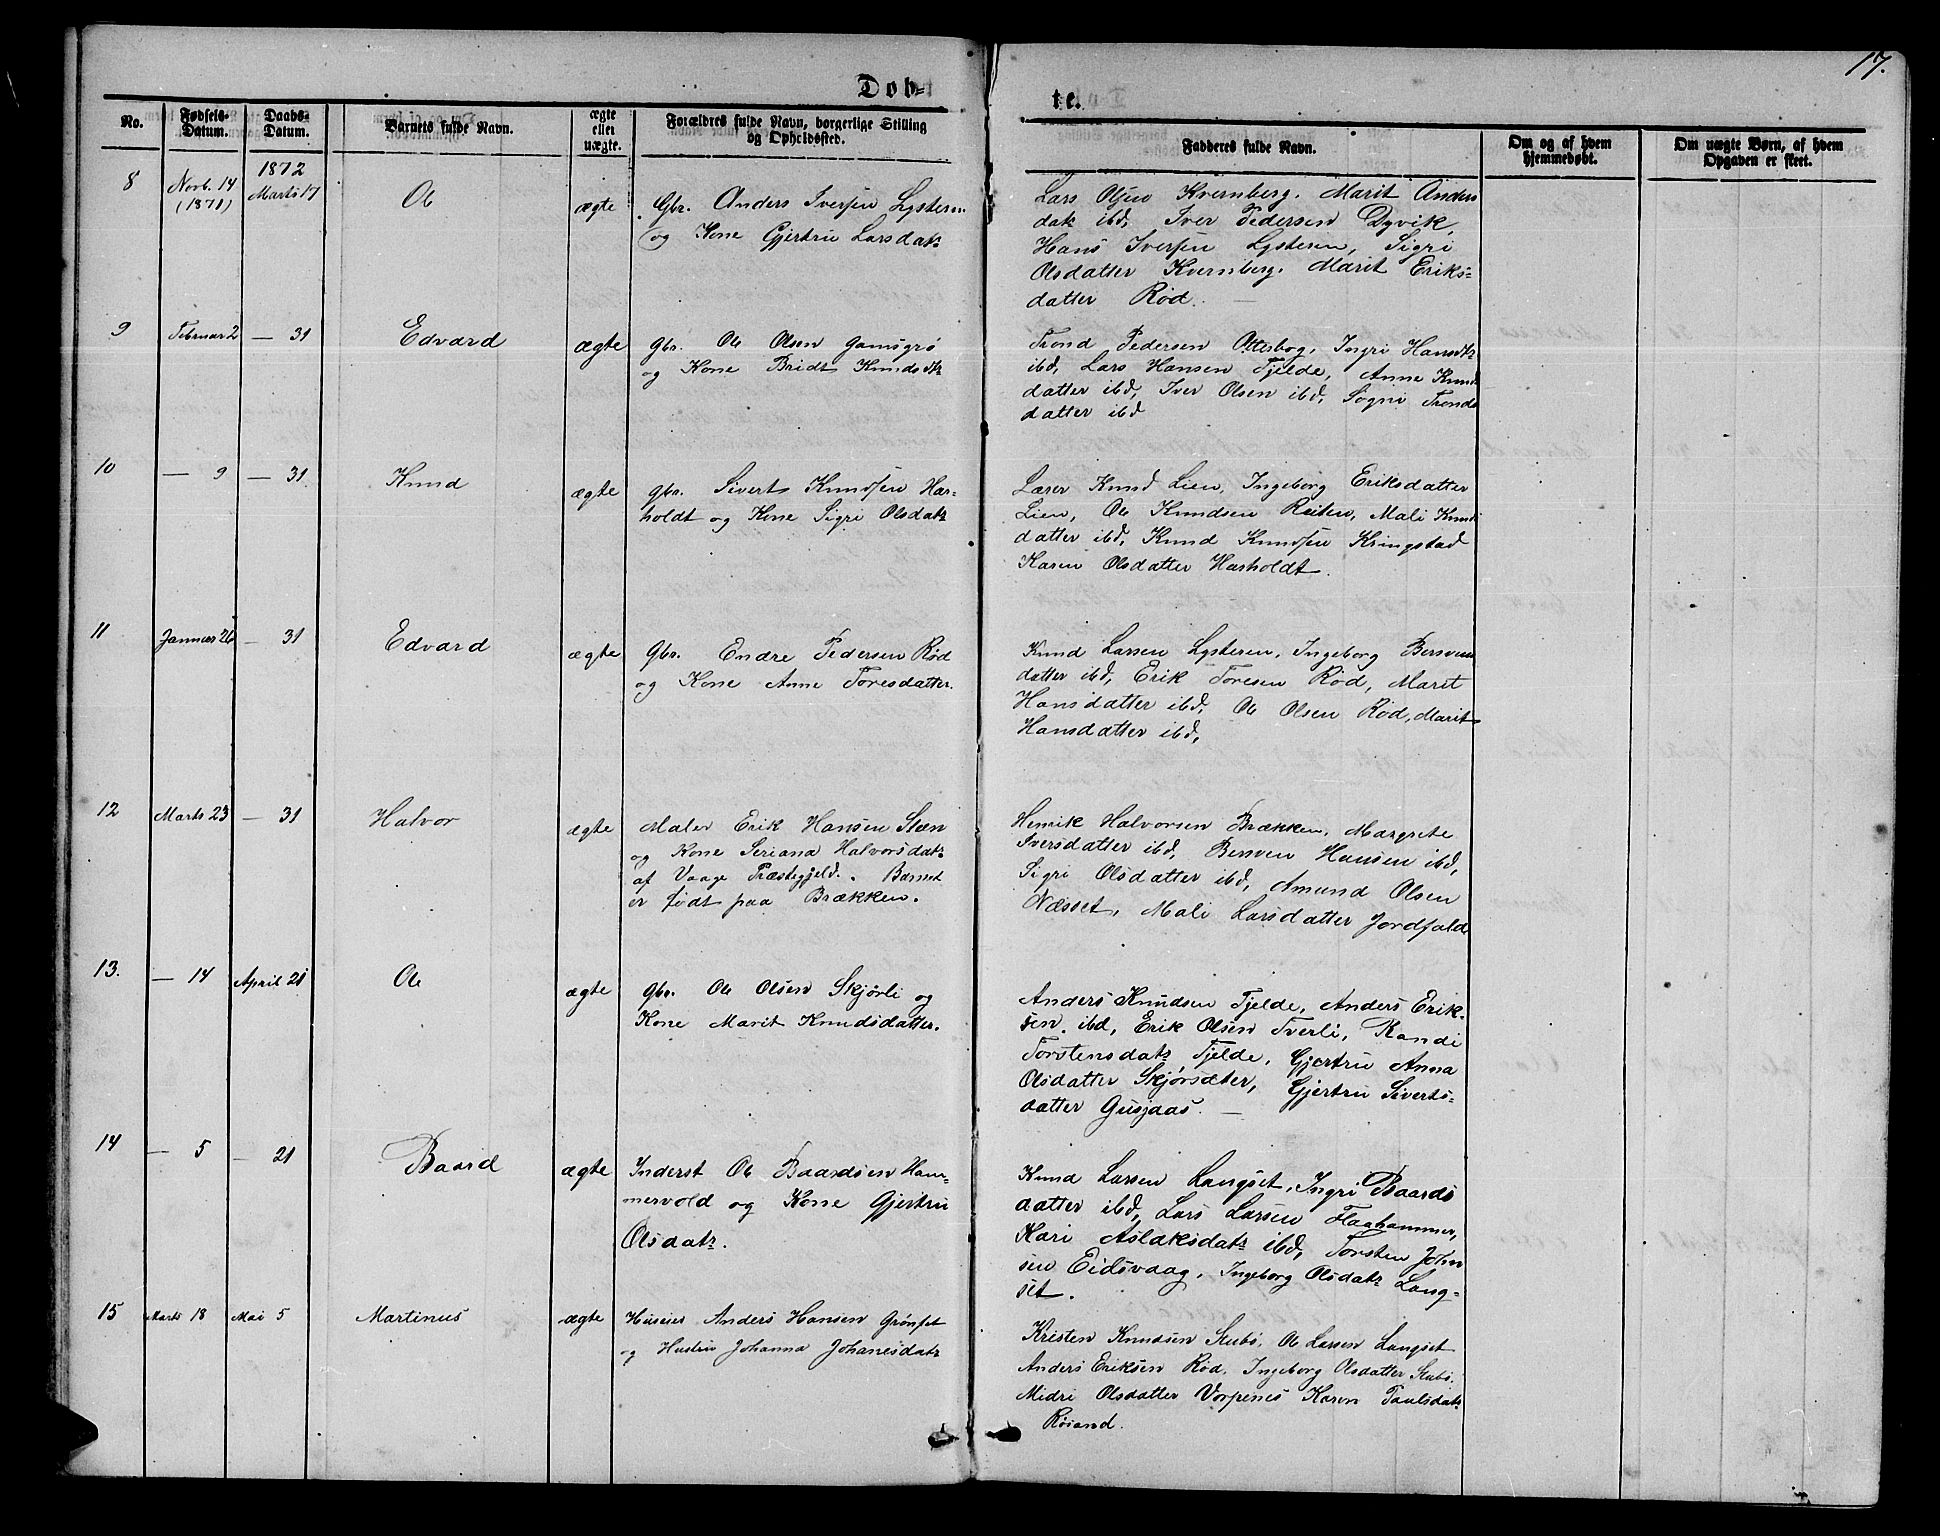 17.
Døb-
te.
No.
Fødsels-
Datum.
Daabs-
Datum.
Barnets fulde Navn.
ægte
eller
uægte.
Forældres fulde Navn, borgerlige Stilling
og Opholdssted.
Fadderes fulde Navn.
Om og af hvem
hjemmedøbt.
Om uægte Børn, af hvem
Opgaven er skeet.
1872
8
Novb. 14
(1871)
Marts 17
Ole
ægte
Gbr. Anders Iversen Lysteren
og Kone Gjertru Larsdatr
Lars Olsen Kvernberg. Marit Anders
datr ibd, Iver Pedersen Dyvik,
Hans Iversen Lysteren, Sigri
Olsdatter Kvernberg. Marit Eriks=
datter Rød.
9
Februar 2
— 31
Edvard
ægte
gbr. Ole Olsen Gansgrø
og Kone Bridt Knudsdtr
Trond Pedersen Otterbog, Ingri Hansdtr
ibd, Lars Hansen Tjelde, Anne Knuds
datter ibd, Iver Olsen ibd, Sogni Tronds
datter ibd
10
— 9
— 31
Knud
ægte
gbr. Sivert Knudsen Har=
holdt og Kone Sigri Olsdatr
Lærer Knud Lien, Ingeborg Eriksdatter
Lien, Ole Knudsen Reiten, Mali Knuds
datter ibd, Knud Knudsen Kringstad
Karen Olsdatter Harholdt.
11
Januar 26
— 31
Edvard
ægte
Gbr. Endre Pedersen Rød
og Kone Anne Toresdatter.
Knud Larsen Lysteren, Ingeborg Bersven
datter ibd, Erik Toresen Rød, Marit
Hansdatter ibd, Ole Olsen Rød, Marit
Hansdatter ibd,
12
Marts 23
— 31
Halvor
ægte
Maler Erik Hansen Steen
og Kone Seriana Halvorsdatr
af Vaage Præstegjeld. Barnet
er født paa Brækken.
Henrik Halvorsen Brækken, Margrete
Iversdatter ibd, Bersven Hansen ibd,
Sigri Olsdatter ibd, Amund Olsen
Næsset, Mali Larsdatter Jordfald
13.
— 14
April 21
Ole
ægte
gbr. Ole Olsen Skjørli og
Kone Marit Knudsdatter.
Anders Knudsen Tjelde, Anders Erik-
sen. ibd, Erik Olsen Tverli, Randi
Torstensdatr Tjelde, Gjertru Anna
Olsdatter Skjørsæter, Gjertru Siverts=
datter Gusjaas. —
14
— 5
— 21
Baard
ægte
Inderst Ole Baardsen Ham=
mervold og Kone Gjertru
Olsdatr.
Knud Larsen Langset, Ingri Baards
datter ibd, Lars Larsen Flaahammer,
Kari Aslaksdatr ibd, Torsten John
sen Eidsvaag, Ingeborg Olsdatr Lang=
set.
15
Marts 18
Mai 5
Martinus
ægte
Huseier Anders Hansen Grønset
og Hustru Johanna Johanesdatr
Kristen Knudsen Stubø, Ole Larsen Langset
Anders Eriksen Rød, Ingeborg Olsdatter Stubø.
Midri Olsdatter Vorpenes Karen Paulsdatr
Røsand.